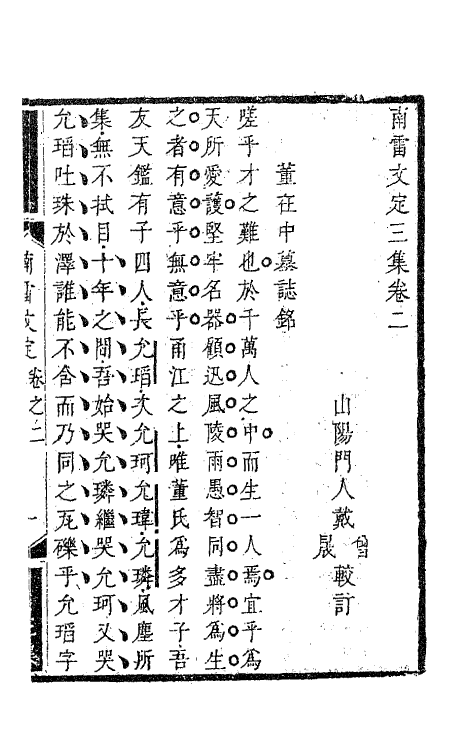 南雷文定三集卷二
山陽門人戴曾晟較訂
董在中墓誌銘
嗟乎才之難也於千萬人之中而生一人焉宜乎爲
天所愛護堅牢名器顧迅風陵雨愚智同盡將爲生
之者有意乎無意乎甬江之上唯董氏爲多才子吾
友天鑑有子四人長允瑫次允珂允瑋允璘風塵所
集無不拭目十年之間吾始哭允璘繼哭允珂又哭
允瑫吐珠於澤誰能不含而乃同之瓦礫乎允瑫字
南雷文定 卷之二 一